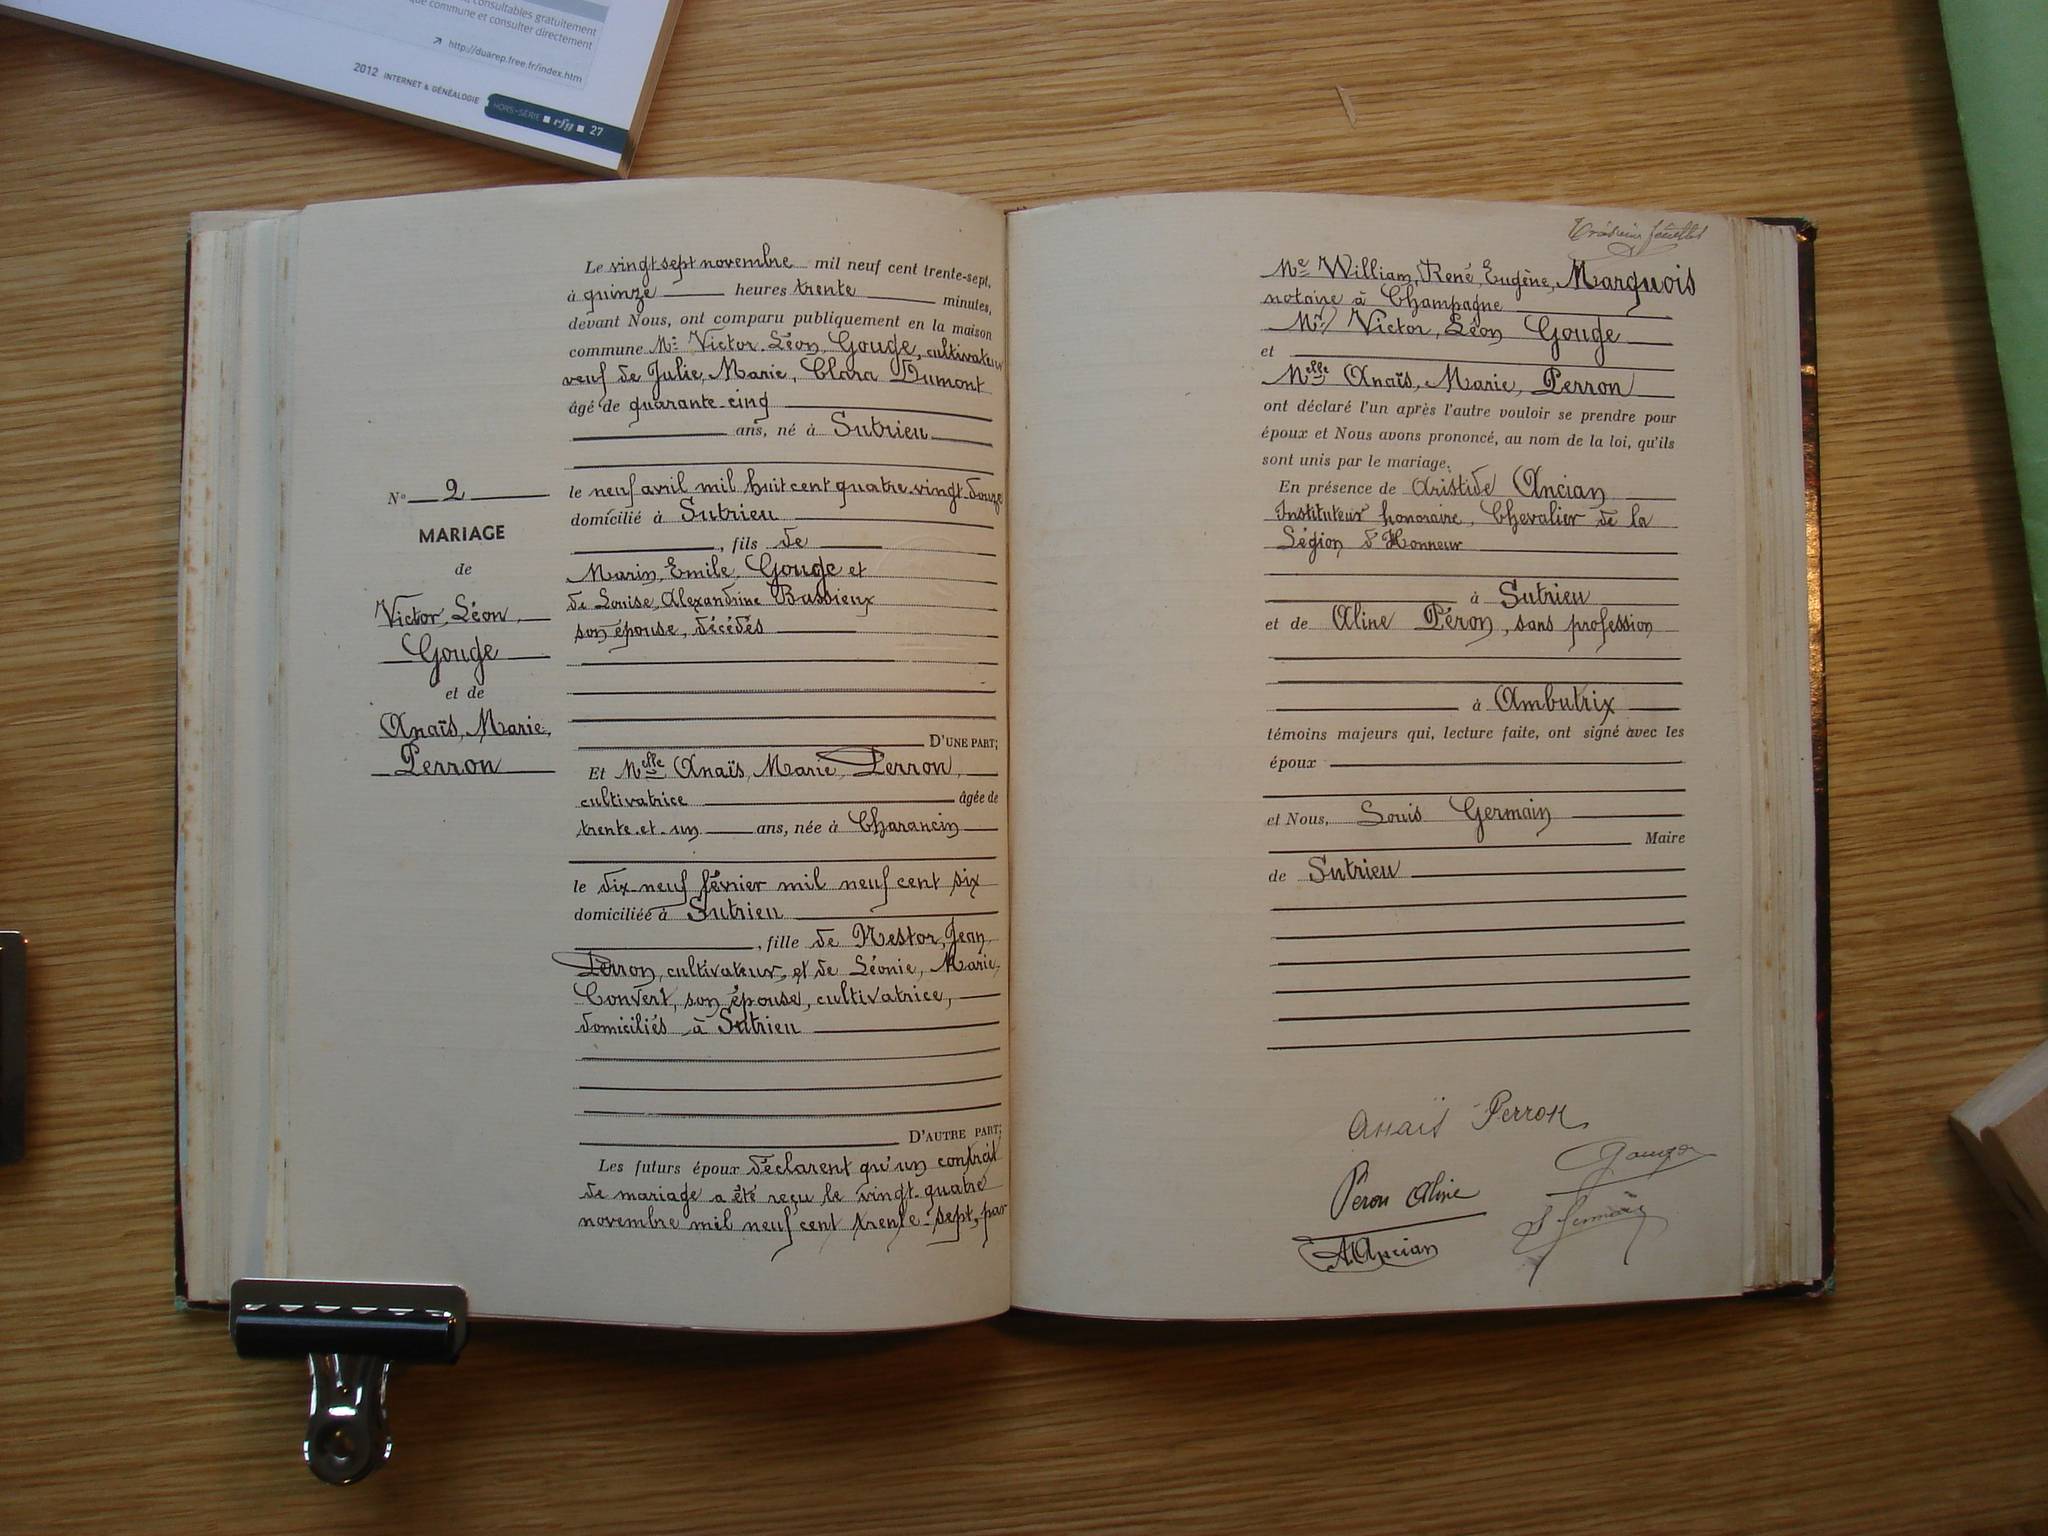 consultables gratuitement
que commune et consulter directement
http://duarep.free.fr/index.htm
2012 INTERNET & GÉNÉALOGIE
HORS-SÉRIE rfg 27
N° 2
MARIAGE
de
Victor, Léon,
Gouge
et de
Anaïs, Marie,
Perron
Le vingt sept novembre mil neuf cent trente-sept,
à quinze heures trente minutes,
devant Nous, ont comparu publiquement en la maison
commune Mr Victor, Léon, Gouge, cultivateur
veuf de Julie, Marie, Clara Dumont
âgé de quarante-cinq
ans, né à Sutrieu
le neuf avril mil huit cent quatre-vingt-douze
domicilié à Sutrieu
, fils de
Marin, Emile, Gouge et
de Louise, Alexandrine Bassieux
son épouse, décédés
D'UNE PART;
Et Melle Anaïs, Marie, Perron,
cultivatrice âgée de
trente-et-un ans, née à Charancin
le dix-neuf février mil neuf cent six
domiciliée à Sutrieu
, fille de Nestor, Jean,
Perron, cultivateur, et de Léonie, Marie,
Convert, son épouse, cultivatrice,
domiciliés à Sutrieu
D'AUTRE PART;
Les futurs époux déclarent qu'un contrat
de mariage a été reçu le vingt-quatre
novembre mil neuf cent trente-sept, par
Me William, René, Eugène, Marquois
notaire à Champagne
Mr Victor, Léon Gouge
et
Melle Anaïs, Marie, Perron
ont déclaré l'un après l'autre vouloir se prendre pour
époux et Nous avons prononcé, au nom de la loi, qu'ils
sont unis par le mariage.
En présence de Aristide Ancian
Instituteur honoraire, Chevalier de la
Légion d'Honneur
à Sutrieu
et de Aline Péron, sans profession
à Ambutrix
témoins majeurs qui, lecture faite, ont signé avec les
époux
et Nous, Louis Germain
Maire
de Sutrieu
Anaïs Perron
Gouge
Peron Aline
L Germain
A Ancian